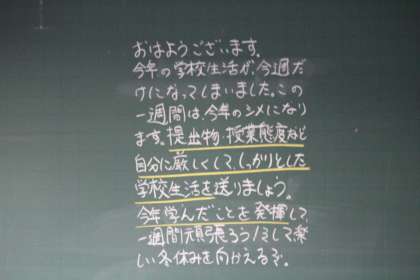 おはようございます。
今年の学校生活が、今週だ
けになってしまいました。この
一週間は今年のシメになり
ます。提出物・授業態度など
自分に厳しくして、しっかりとした
学校生活を送りましょう。
今年学んだことを発揮して、
一週間頑張ろう!そして楽
しい冬休みを向かえるぞ。